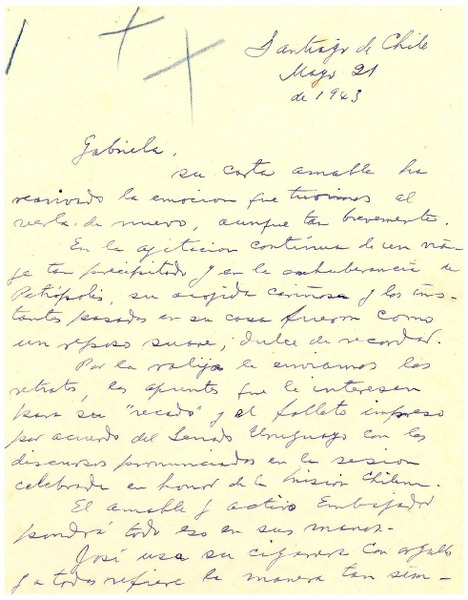 Santiago de Chile
Mayo 21
de 1943
Gabriela,
su carta amable ha
reavivado la emocion que tuvimos al
verla de nuevo, aunque tan brevemente.
En la agitacion continua de un via-
je tan precipitado y en la exhuberancia de
Petrópolis, su acojida cariñosa y los ins-
tantes pasados en su casa fueron como
un reposo suave, dulce de recordar.
Por la valija le enviamos los
retratos, los apuntes que le interesen
para su "recado" y el folleto impreso
por acuerdo del Senado Uruguayo con los
discursos pronunciados en la sesion
celebrada en honor de la mision Chilena.
El amable y activo Embajador
pondrá todo eso en sus manos.-
José usa su cigarrera con orgullo
y a todos refiere la manera tan sim-